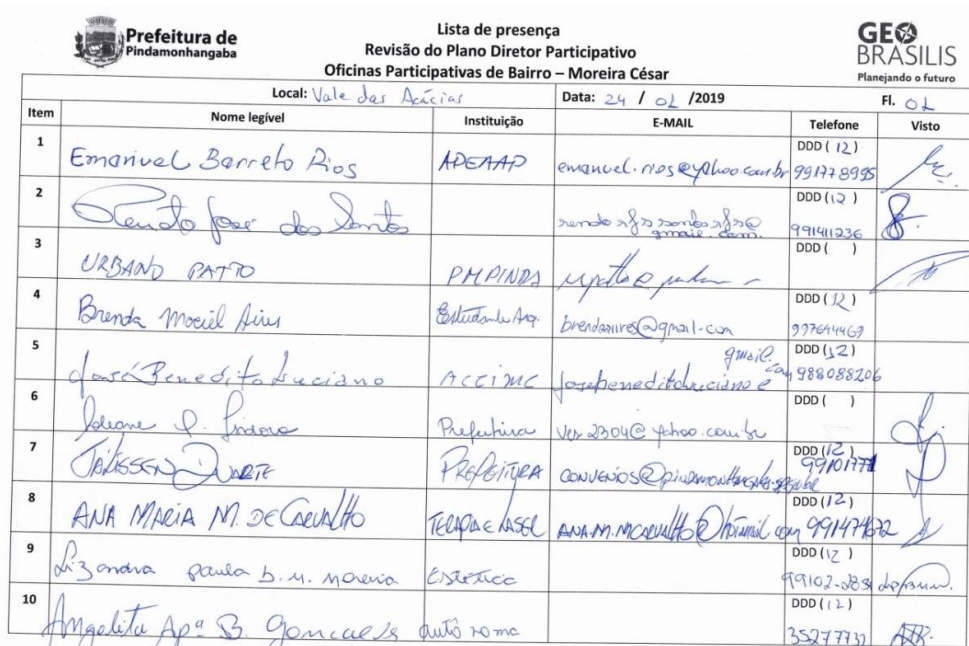 Prefeitura de
Pindamonhangaba
Lista de presença
Revisão do Plano Diretor Participativo
Oficinas Participativas de Bairro – Moreira César
GEO
BRASILIS
Planejando o futuro
Local: Vale das Acácias Data: 24 / 02 /2019 Fl. 01
Item Nome legível Instituição E-MAIL Telefone Visto
1 Emanuel Barreto Rios APEAAP emanuel.rios@yahoo.com.br DDD (12) 991778995
2 Renato José dos Santos DDD (12) 991411236
3 URBANO PATTO PMPINDA DDD ( )
4 Brenda Maciel Aires Estudante Arq. brendaaires@gmail.com DDD (12) 997644469
5 José Benedito Luciano ACCIMC josebeneditoluciano@ gmail.com DDD (12) 988088206
6 Prefeitura Ver.2304@yahoo.com.br DDD ( )
7 JAKISSEN DUARTE PREFEITURA DDD (12) 99101777
8 ANA MARIA M. DE CARVALHO TERAPIA E LASER ANA.M.MCARVALHO@hotmail.com DDD (12) 991474672
9 Lizandra paula b. m. moreira Estética DDD (12)
10 Angelita Apª B. Goncalves autônoma DDD (12) 35277732